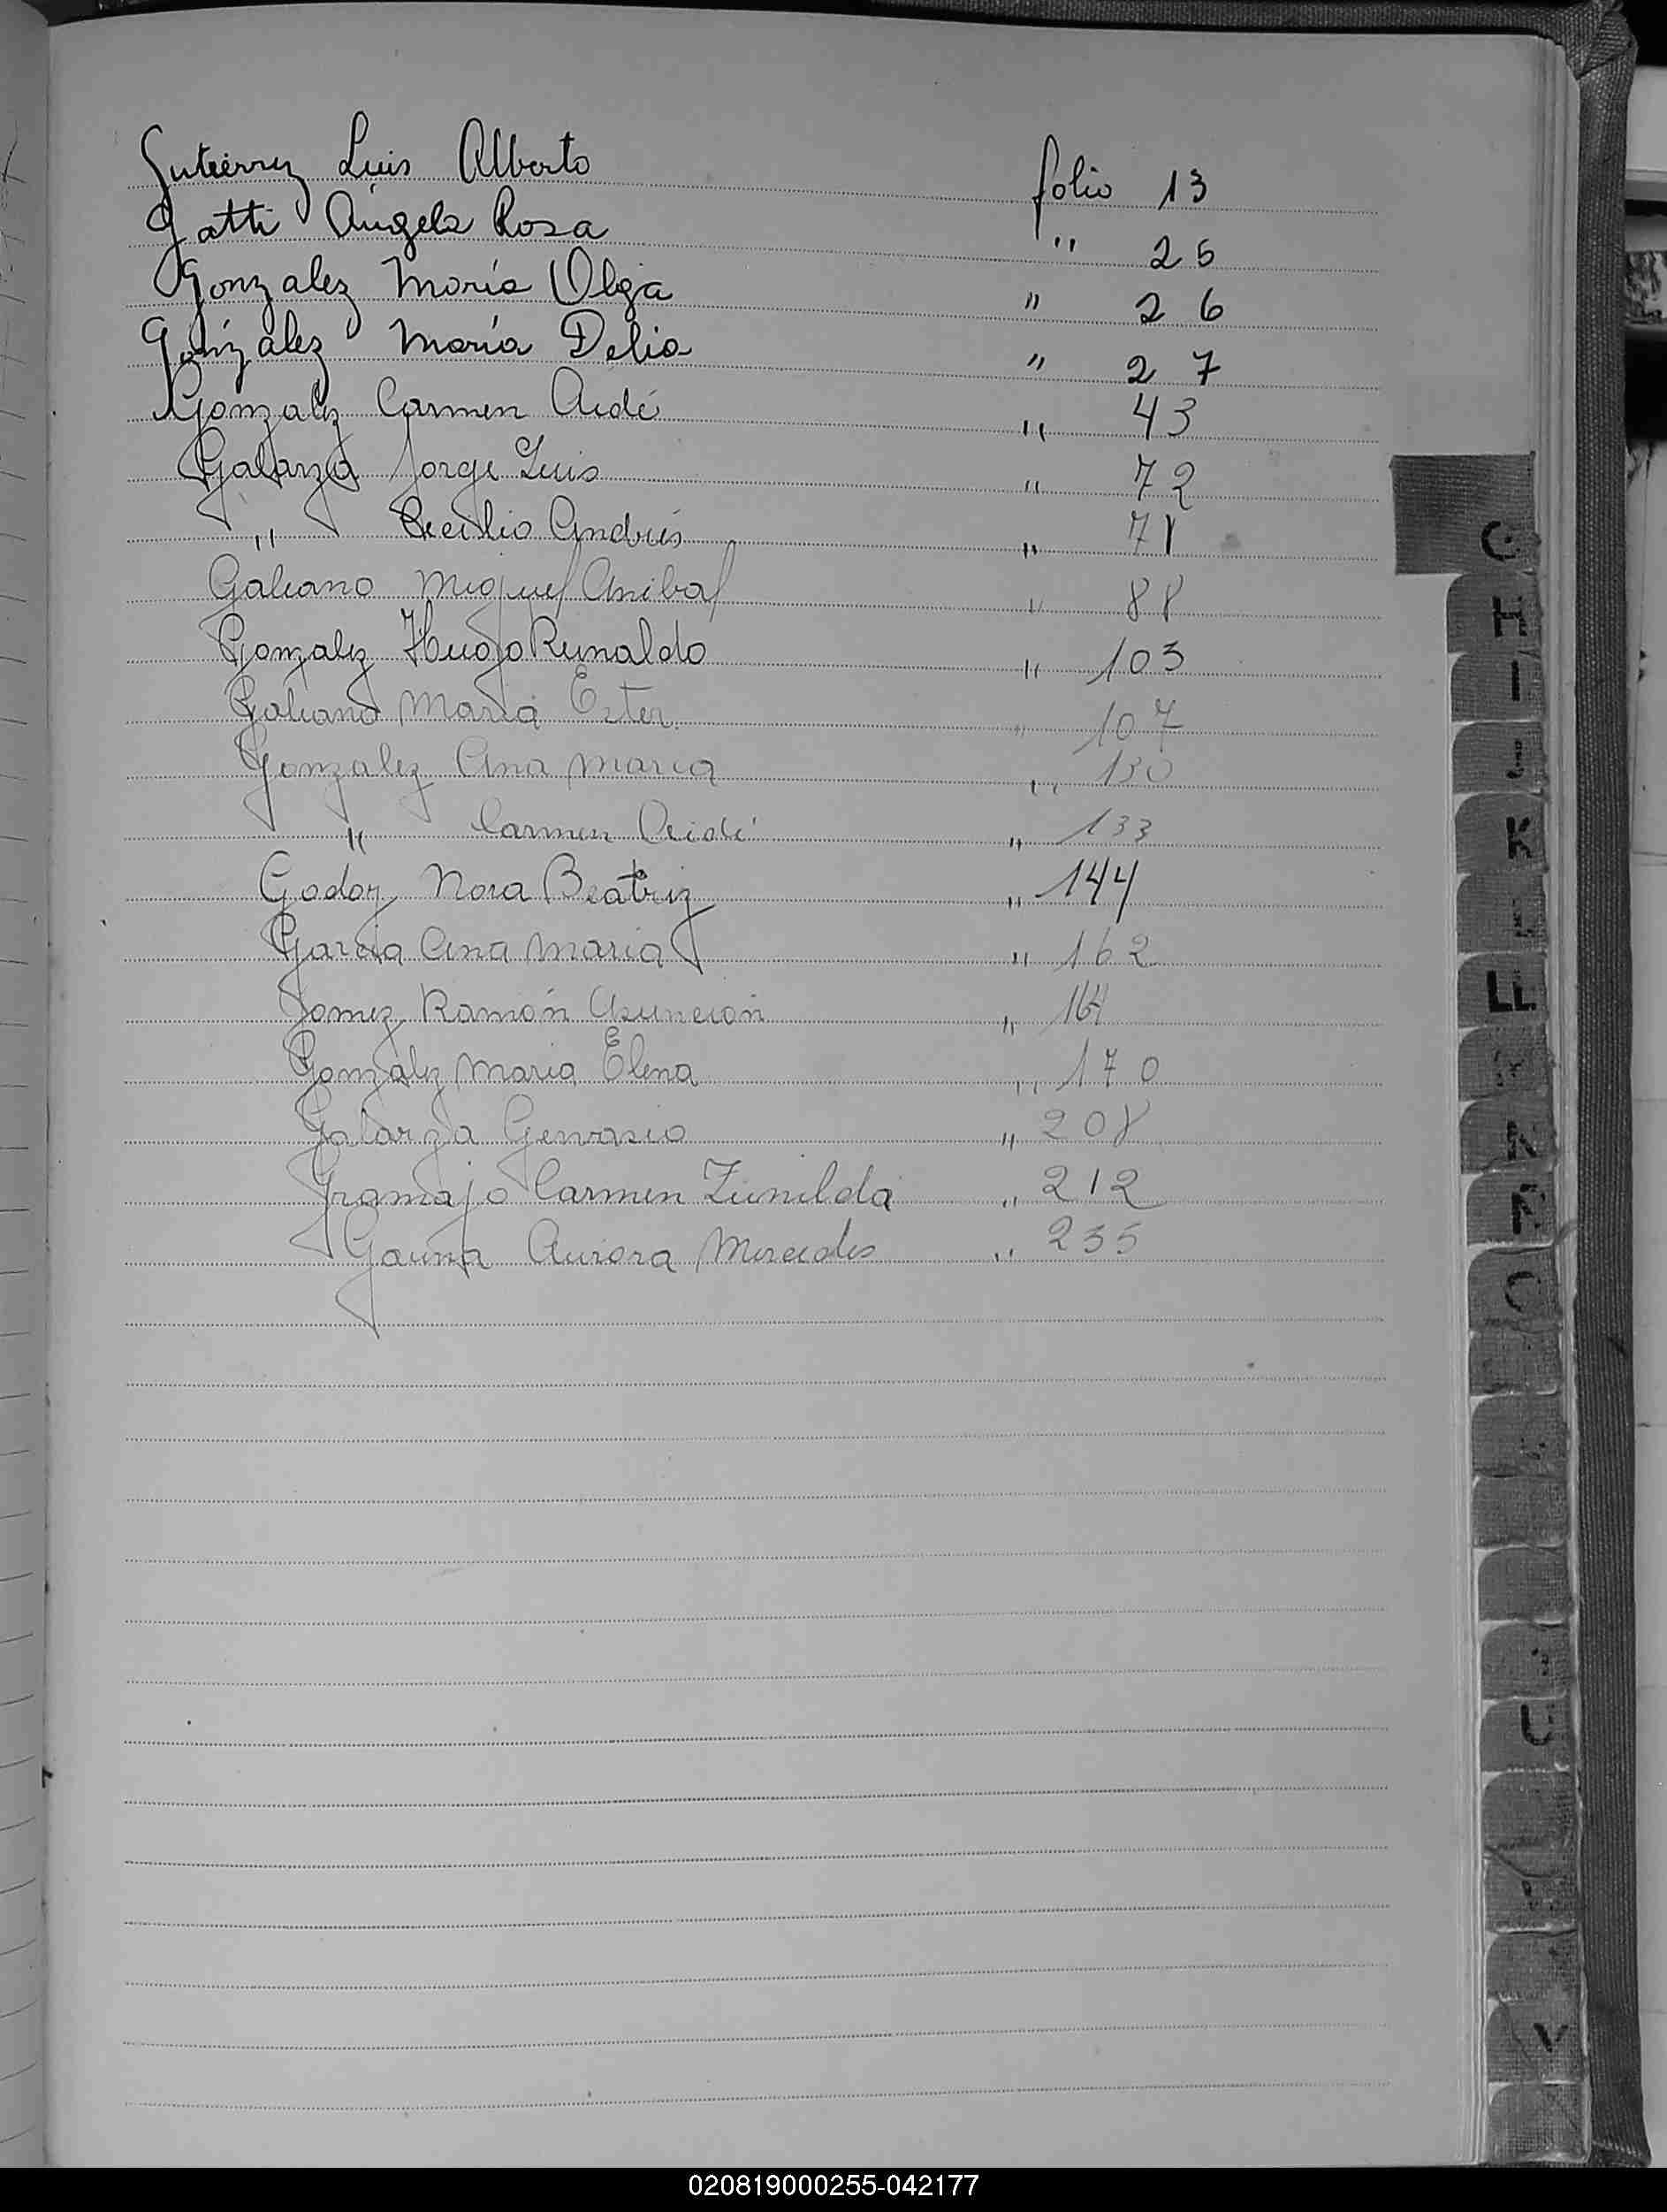 Gutiérrez Luis Alberto folio 13
Gatti Angela Rosa " 25
Gonzalez María Olga " 26
Gonzalez María Delia " 27
Gonzalez Carmen Aidé " 43
Galarza Jorge Luis " 72
" Cecilio Andrés " 78
Galeano Miguel Anibal " 88
Gonzalez Hugo Reinaldo " 103
Galeano Maria Ester " 107
Gonzalez Ana Maria " 130
" Carmen Aidé " 133
Godoy Nora Beatriz " 144
Garcia Ana Maria " 162
Gomez Ramón Asunción "
Gonzalez Maria Elena " 170
Galarza Gervasio " 208
Gramajo Carmen Zunilda " 212
Gauna Aurora Mercedes " 235
G
H
I
K
Ll
N
Ñ
O
U
Y
020819000255-042177